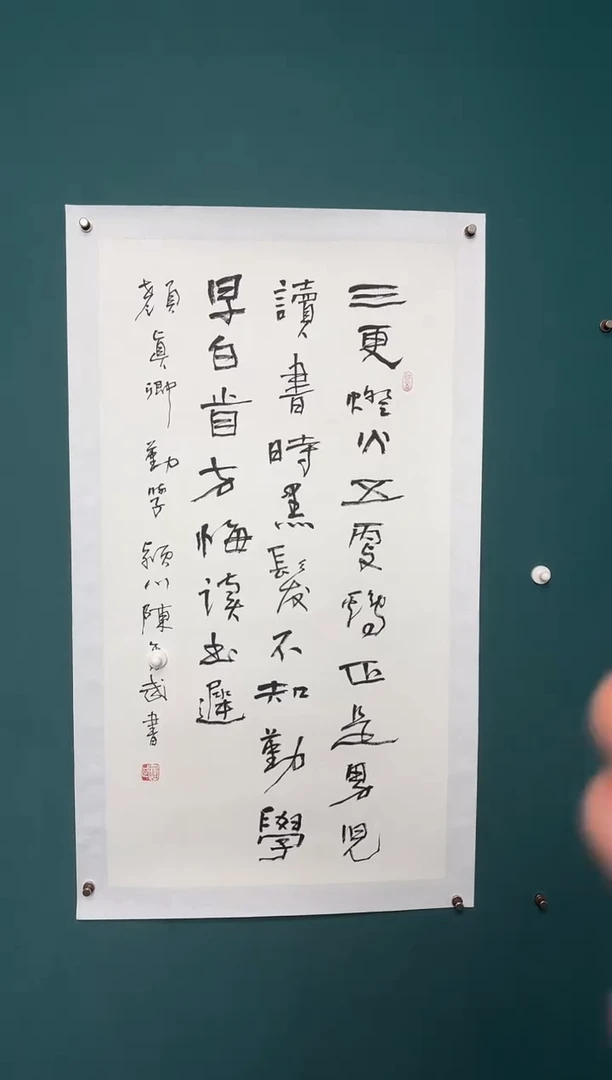 三更燈火五更鷄正是男兒
讀書時黑髮不知勤學
早白首方悔读书遲
顏眞卿勤學潁川陳武書